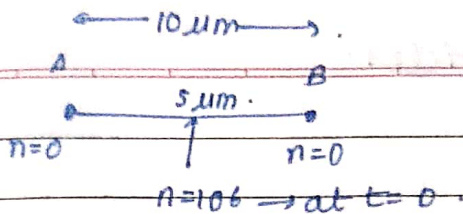 10 μm
A B
5 μm.
n=0 n=0
n=106 → at t= 0